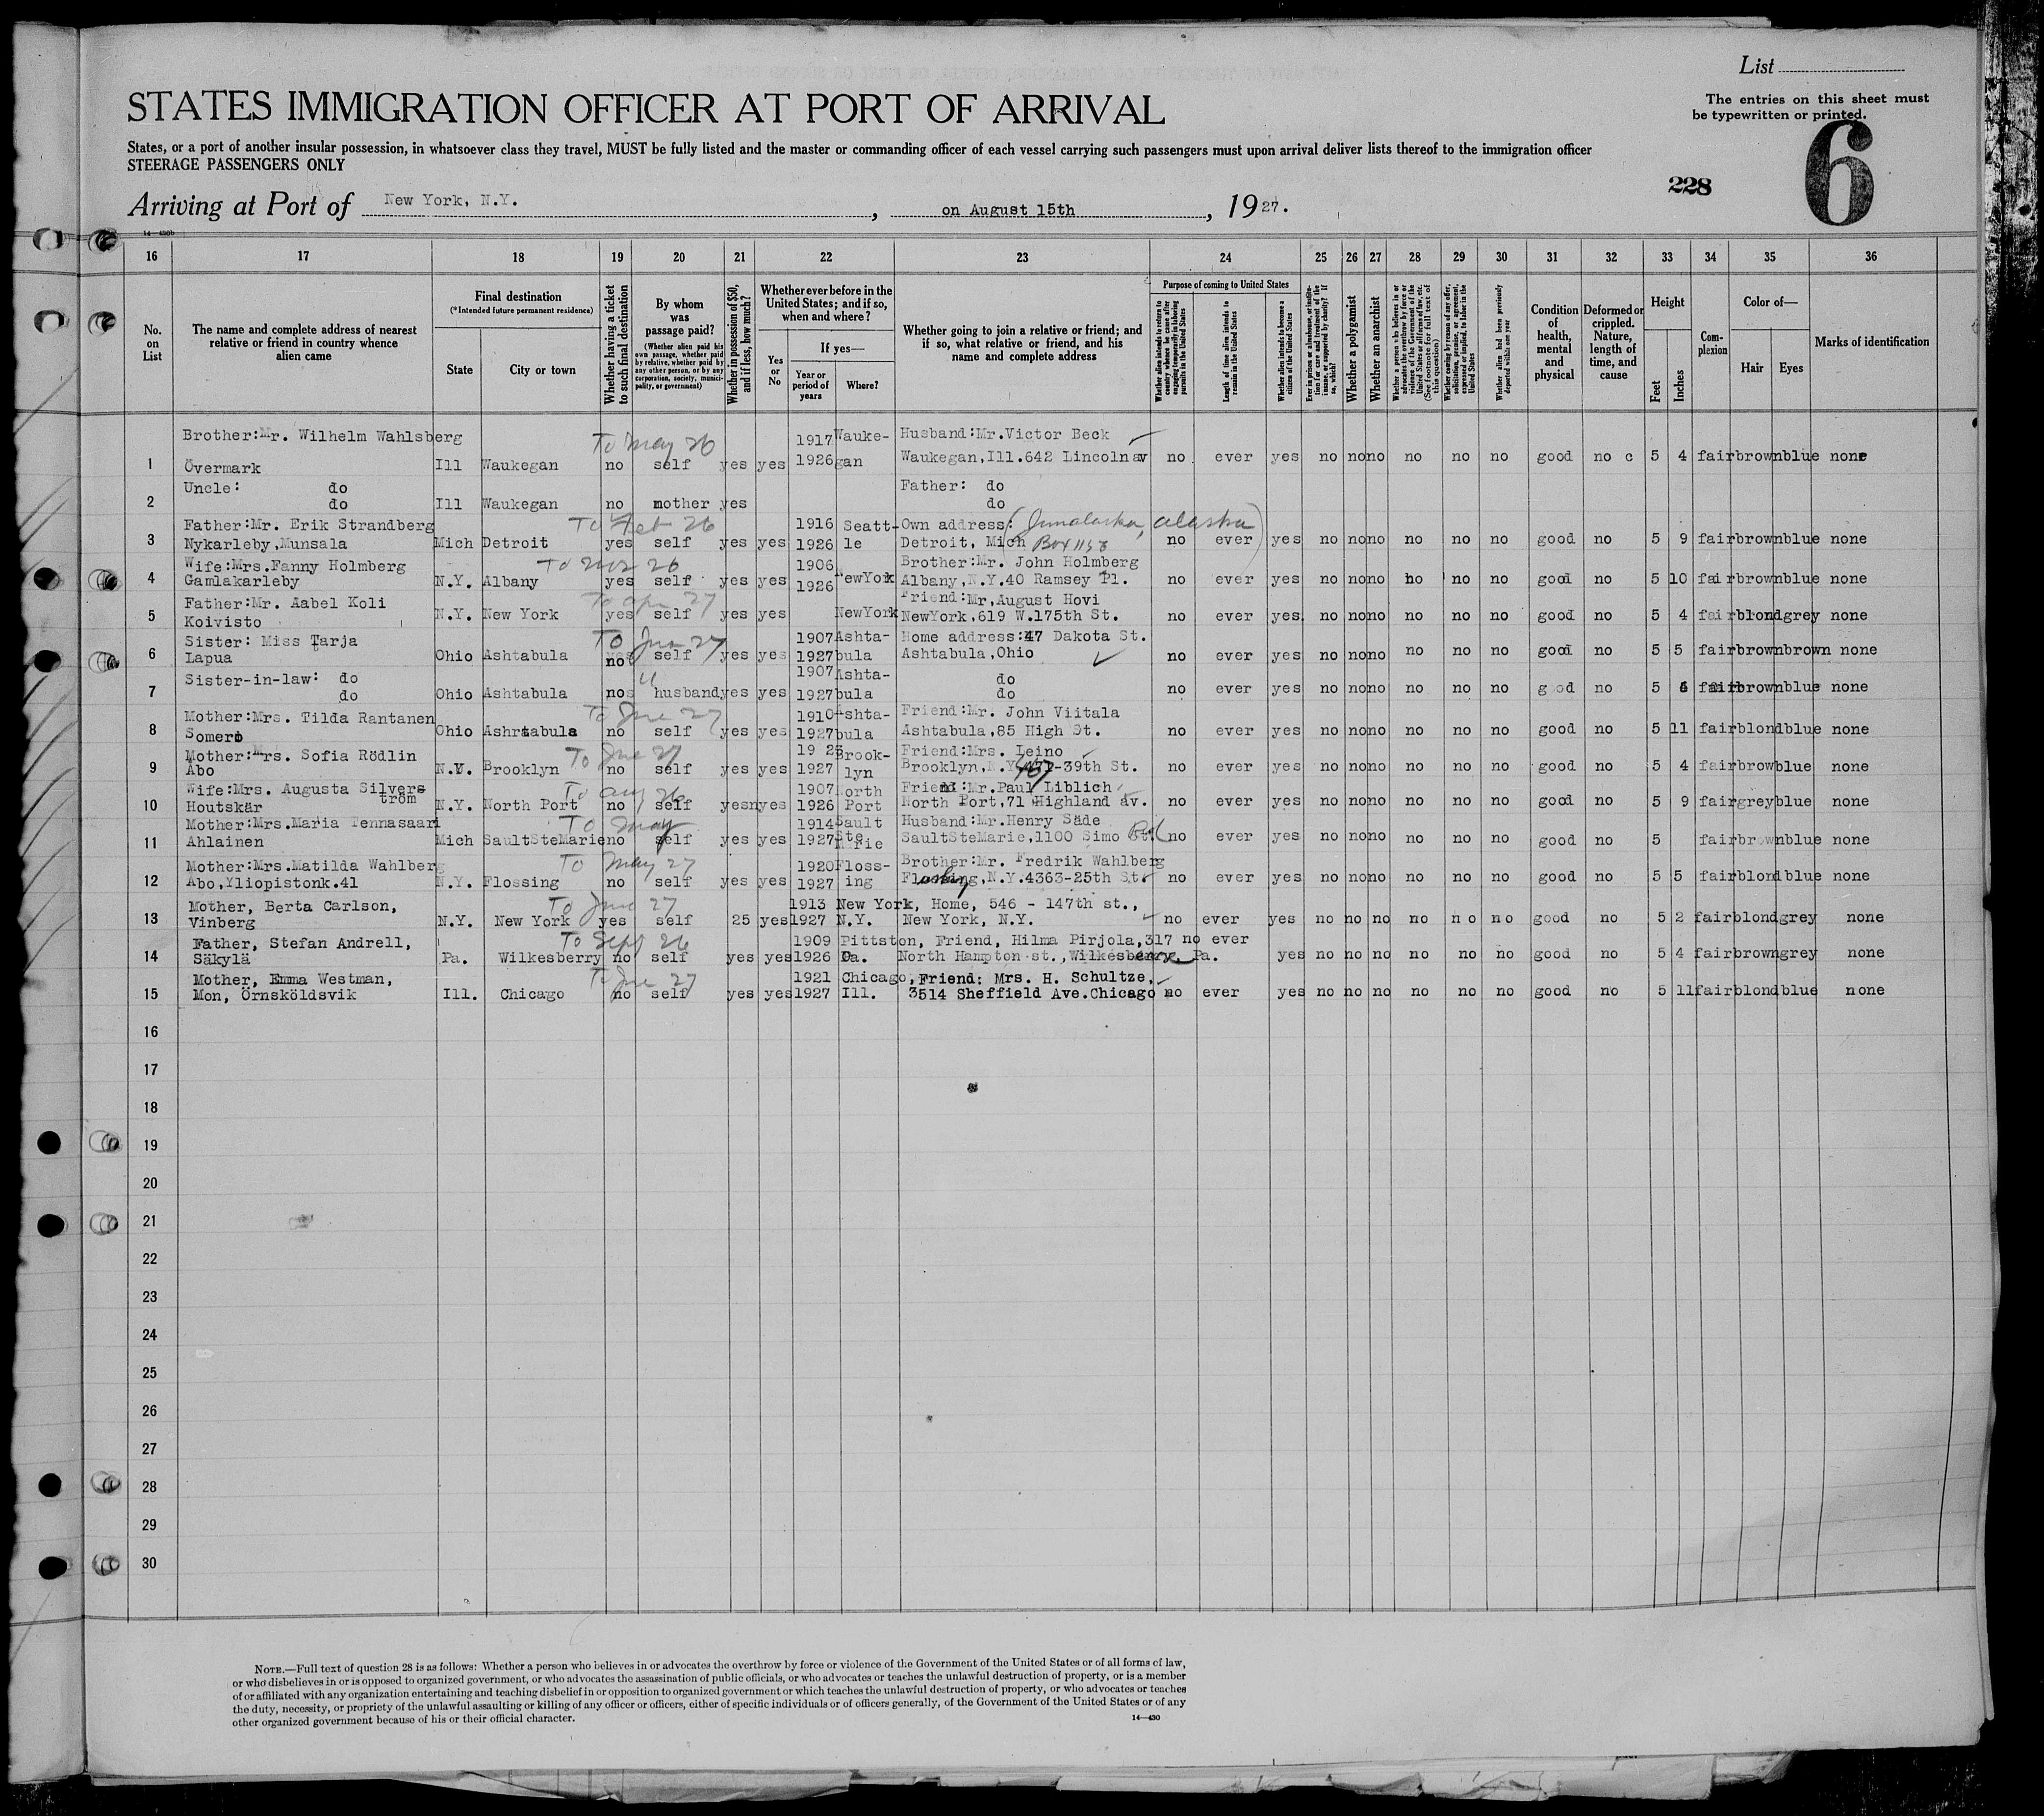 List
STATES IMMIGRATION OFFICER AT PORT OF ARRIVAL
The entries on this sheet must
be typewritten or printed.
States, or a port of another insular possession, in whatsoever class they travel, MUST be fully listed and the master or commanding officer of each vessel carrying such passengers must upon arrival deliver lists thereof to the immigration officer
STEERAGE PASSENGERS ONLY
6
228
Arriving at Port of New York, N.Y. , on August 15th , 1927.
14—430b
16 17 18 19 20 21 22 23 24 25 26 27 28 29 30 31 32 33 34 35 36
No. on List
The name and complete address of nearest relative or friend in country whence alien came
Final destination
(*Intended future permanent residence)
State
City or town
Whether having a ticket to such final destination
By whom was passage paid?
(Whether alien paid his own passage, whether paid by relative, whether paid by any other person, or by any corporation, society, municipality, or government)
Whether in possession of $50, and if less, how much?
Whether ever before in the United States; and if so, when and where?
Yes or No
If yes—
Year or period of years
Where?
Whether going to join a relative or friend; and if so, what relative or friend, and his name and complete address
Purpose of coming to United States
Whether alien intends to return to country whence he came after engaging temporarily in laboring pursuits in the United States
Length of time alien intends to remain in the United States
Whether alien intends to become a citizen of the United States
Ever in prison or almshouse, or institution for care and treatment of the insane, or supported by charity? If so, which?
Whether a polygamist
Whether an anarchist
Whether a person who believes in or advocates the overthrow by force or violence of the Government of the United States or all forms of law, etc. (See footnote for full text of this question)
Whether coming by reason of any offer, solicitation, promise, or agreement, expressed or implied, to labor in the United States
Whether alien had been previously deported within one year
Condition of health, mental and physical
Deformed or crippled. Nature, length of time, and cause
Height
Feet
Inches
Complexion
Color of—
Hair
Eyes
Marks of identification
Brother:Mr. Wilhelm Wahlsberg To May 26 1917 Wauke- Husband:Mr.Victor Beck
1 Övermark Ill Waukegan no self yes yes 1926 gan Waukegan,Ill.642 Lincoln av no ever yes no no no no no no good no c 5 4 fair brown blue none
Uncle: do Father: do
2 do Ill Waukegan no mother yes do
Father:Mr. Erik Strandberg To Feb 26 1916 Seatt- Own address: Alaska
3 Nykarleby,Munsala Mich Detroit yes self yes yes 1926 le Detroit, Mich no ever yes no no no no no no good no 5 9 fair brown blue none
Wife:Mrs.Fanny Holmberg 1906 Brother:Mr. John Holmberg
4 Gamlakarleby N.Y. Albany yes self yes yes 1926 NewYork Albany,N.Y.40 Ramsey Pl. no ever yes no no no no no no good no 5 10 fair brown blue none
Father:Mr. Aabel Koli To Apr 27 Friend:Mr,August Hovi
5 Koivisto N.Y. New York yes self yes yes NewYork NewYork,619 W.175th St. no ever yes no no no no no no good no 5 4 fair blond grey none
Sister: Miss Tarja 1907 Ashta- Home address:47 Dakota St.
6 Lapua Ohio Ashtabula no self yes yes 1927 bula Ashtabula,Ohio no ever yes no no no no no no good no 5 5 fair brown brown none
Sister-in-law: do 1907 Ashta- do
7 do Ohio Ashtabula no husband yes yes 1927 bula do no ever yes no no no no no no good no 5 6 fair brown blue none
Mother:Mrs. Tilda Rantanen To June 27 1910 Ashta- Friend:Mr. John Viitala
8 Somero Ohio Ashtabula no self yes yes 1927 bula Ashtabula,85 High St. no ever yes no no no no no no good no 5 11 fair blond blue none
Mother:Mrs. Sofia Rödlin To June 27 1923 Brook- Friend:Mrs. Leino
9 Åbo N.Y. Brooklyn no self yes yes 1927 lyn Brooklyn,N.Y. 457-39th St. no ever yes no no no no no no good no 5 4 fair brow blue none
Wife:Mrs. Augusta Silvers To Aug 26 1907 North Friend:Mr.Paul Liblich
tröm
10 Houtskär N.Y. North Port no self yes yes 1926 Port North Port,71 Highland av. no ever yes no no no no no no good no 5 9 fair grey blue none
Mother:Mrs.Maria Tennasaari To May 1914 Sault Husband:Mr.Henry Säde
11 Ahlainen Mich SaultSteMarie no self yes yes 1927 Ste. Marie SaultSteMarie,1100 Simo no ever yes no no no no no no good no 5 fair brown blue none
Mother:Mrs.Matilda Wahlberg To May 27 1920 Floss- Brother:Mr. Fredrik Wahlberg
12 Åbo,Yliopistonk.41 N.Y. Flossing no self yes yes 1927 ing Flushing,N.Y.4363-25th St. no ever yes no no no no no no good no 5 5 fair blond blue none
Mother, Berta Carlson, To June 27 1913 New York, Home, 546 - 147th st.,
13 Vinberg N.Y. New York yes self 25 yes 1927 N.Y. New York, N.Y. no ever yes no no no no no no good no 5 2 fair blond grey none
Father, Stefan Andrell, To Sept 26 1909 Pittston, Friend, Hilma Pirjola,317 no ever
14 Säkylä Pa. Wilkesberry no self yes yes 1926 Pa. North Hampton st.,Wilkesberry, Pa. yes no no no no no no good no 5 4 fair brown grey none
Mother, Emma Westman, To June 27 1921 Chicago, Friend: Mrs. H. Schultze,
15 Mon, Örnsköldsvik Ill. Chicago no self yes yes 1927 Ill. 3514 Sheffield Ave.Chicago no ever yes no no no no no no good no 5 11 fair blond blue none
16
17
18
19
20
21
22
23
24
25
26
27
28
29
30
NOTE.—Full text of question 28 is as follows: Whether a person who believes in or advocates the overthrow by force or violence of the Government of the United States or of all forms of law,
or who disbelieves in or is opposed to organized government, or who advocates the assassination of public officials, or who advocates or teaches the unlawful destruction of property, or is a member
of or affiliated with any organization entertaining and teaching disbelief in or opposition to organized government or which teaches the unlawful destruction of property, or who advocates or teaches
the duty, necessity, or propriety of the unlawful assaulting or killing of any officer or officers, either of specific individuals or of officers generally, of the Government of the United States or of any
other organized government because of his or their official character.
14—430